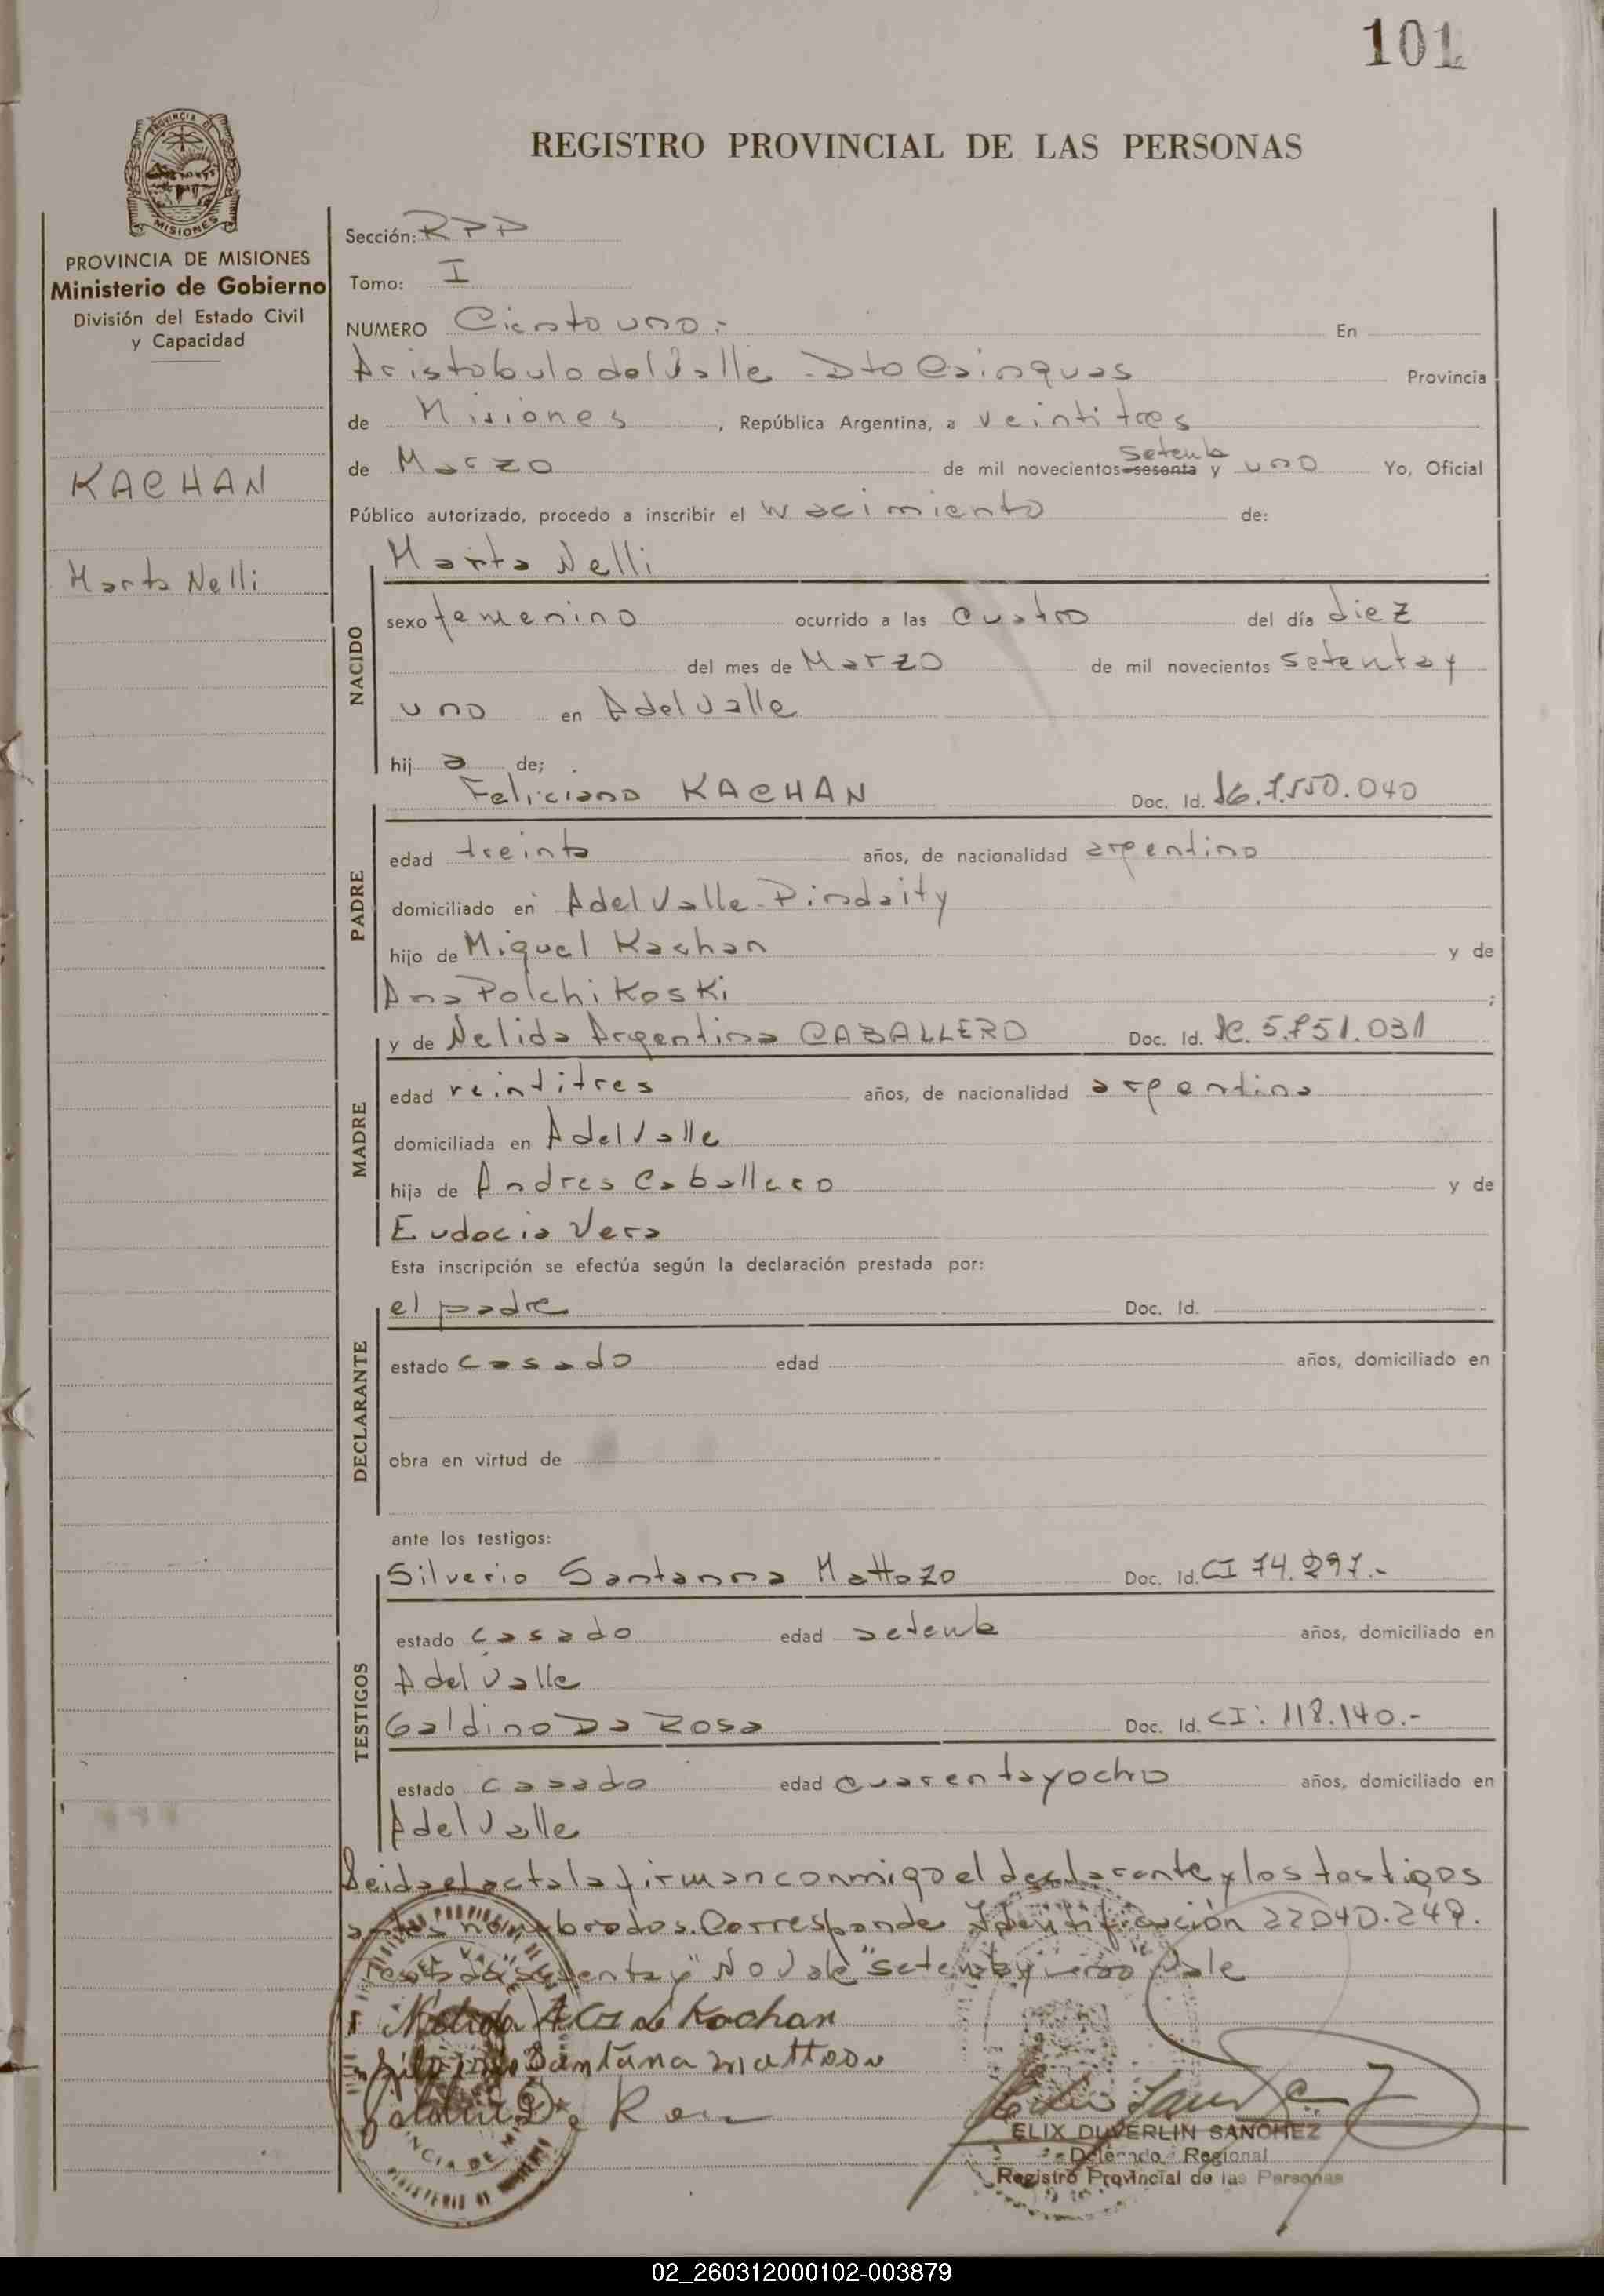 101
REGISTRO PROVINCIAL DE LAS PERSONAS
PROVINCIA DE MISIONES
Ministerio de Gobierno
División del Estado Civil
y Capacidad
KACHAN
Marta Nelli
Sección: RPP
Tomo: I
NUMERO Ciento uno.- En
Aristobulo del Valle - Dto Cainguas Provincia
de Misiones, República Argentina, a veintitres
setenta
de Marzo de mil novecientos sesenta y uno Yo, Oficial
Público autorizado, procedo a inscribir el Nacimiento de:
Marta Nelli
NACIDO
sexo femenino ocurrido a las cuatro del día diez
del mes de Marzo de mil novecientos setenta y
uno en A del Valle
hij a de;
PADRE
Feliciano KACHAN Doc. Id. 7.550.040
edad treinta años, de nacionalidad argentino
domiciliado en A del Valle - Pindaity
hijo de Miguel Kachan y de
Ana Polchikoski ;
MADRE
y de Nelida Argentina CABALLERO Doc. Id.
edad veintitres años, de nacionalidad argentina
domiciliada en A del Valle
hija de Andres Caballero y de
Eudocia Vera
Esta inscripción se efectúa según la declaración prestada por:
DECLARANTE
el padre Doc. Id.
estado casado edad años, domiciliado en
obra en virtud de
ante los testigos:
TESTIGOS
Silverio Santanna Mattozo Doc. Id. CI 74.297.-
estado casado edad setenta años, domiciliado en
A del Valle
Galdino Da Rosa Doc. Id. CI: 118.140.-
estado casado edad cuarenta y ocho años, domiciliado en
A del Valle
Leida el acta la firman conmigo el declarante y los testigos
antes nombrados. Corresponde Identificación 22.040.249.
Testado "sesenta y" No Vale "setenta y" Vale
Nelida A C de Kachan
Santana mattozo
ELIX DUVERLIN SANCHEZ
Delegado Regional
Registro Provincial de las Personas
02_260312000102-003879